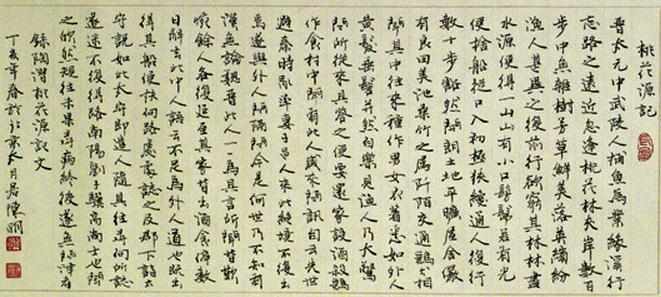 桃花源記
晉太元中武陵人捕魚為業緣溪行
忘路之遠近忽逢桃花林夾岸數百
步中無雜樹芳草鮮美落英繽紛
漁人甚異之復前行欲窮其林林盡
水源便得一山山有小口髣髴若有光
便捨船從口入初極狹纔通人復行
數十步豁然開朗土地平曠屋舍儼
有良田美池桑竹之屬阡陌交通鷄犬相
聞其中往來種作男女衣着悉如外人
黃髮垂髫并然自樂見漁人乃大驚
問所從來具答之便要還家設酒殺鷄
作食村中聞有此人咸來問訊自云先世
避秦時亂率妻子邑人來此絕境不復出
焉遂與外人間隔問今是何世乃不知有
漢無論魏晉此人一一為具言所聞皆歎
惋餘人各復延至其家皆出酒食停數
日辭去此中人語云不足為外人道也既出
得其船便扶向路處處誌之及郡下詣太
守說如此太守即遣人隨其往尋向所誌
遂迷不復得路南陽劉子驥高尚士也聞
之欣然規往未果尋病終後遂無問津者
錄陶潛桃花源記文
丁亥年春於北京月居陳